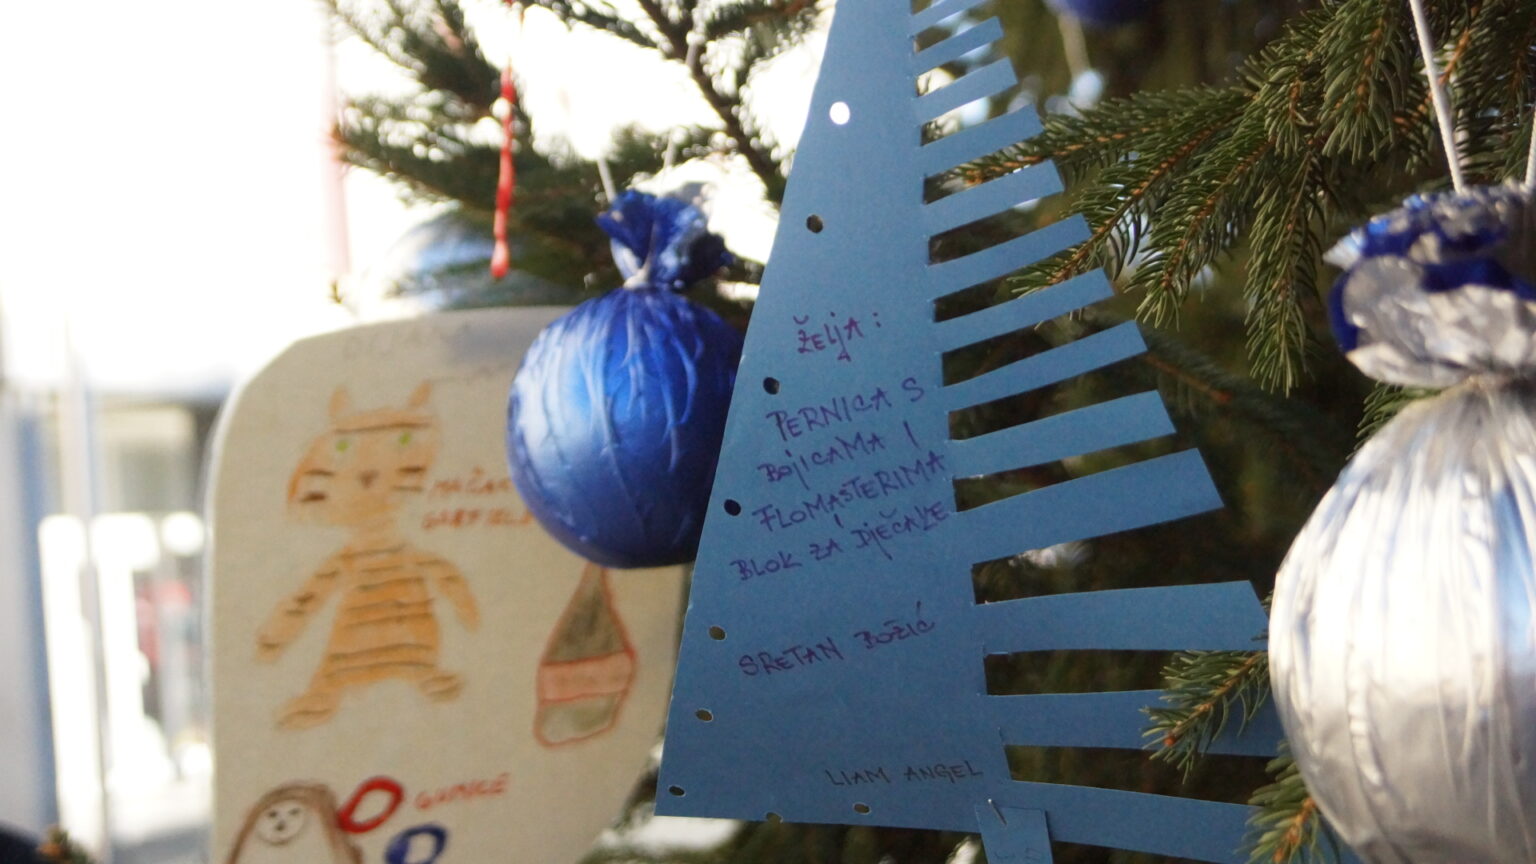 ŽELJA:
PERNICA S
BOJICAMA I
FLOMASTERIMA
BLOK ZA DJEČAKE
SRETAN BOŽIĆ
LIAM ANGEL
GUMICE